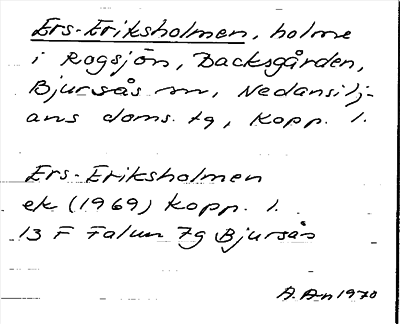 Ers-Eriksholmen, holme
i Rogsjön, Backsgården,
Bjursås sn, Nedansilj-
ans doms. tg, Kopp. l.
Ers-Eriksholmen
ek (1969) Kopp. l.
13 F Falun 7g Bjursås
A. An 1970